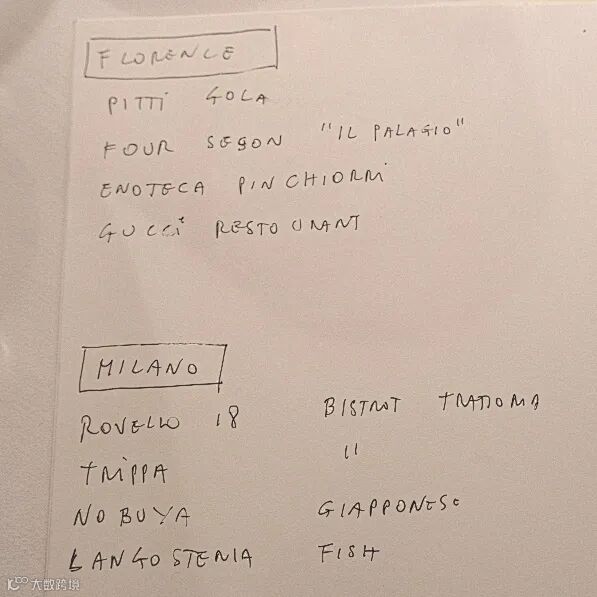 FLORENCE
PITTI GOLA
FOUR SESON "IL PALAGIO"
ENOTECA PINCHIORRI
GUCCI RESTOURANT
MILANO
ROVELLO 18 BISTROT TRATTORIA
TRIPPA "
NOBUYA GIAPPONESE
LANGOSTERIA FISH
大数跨境